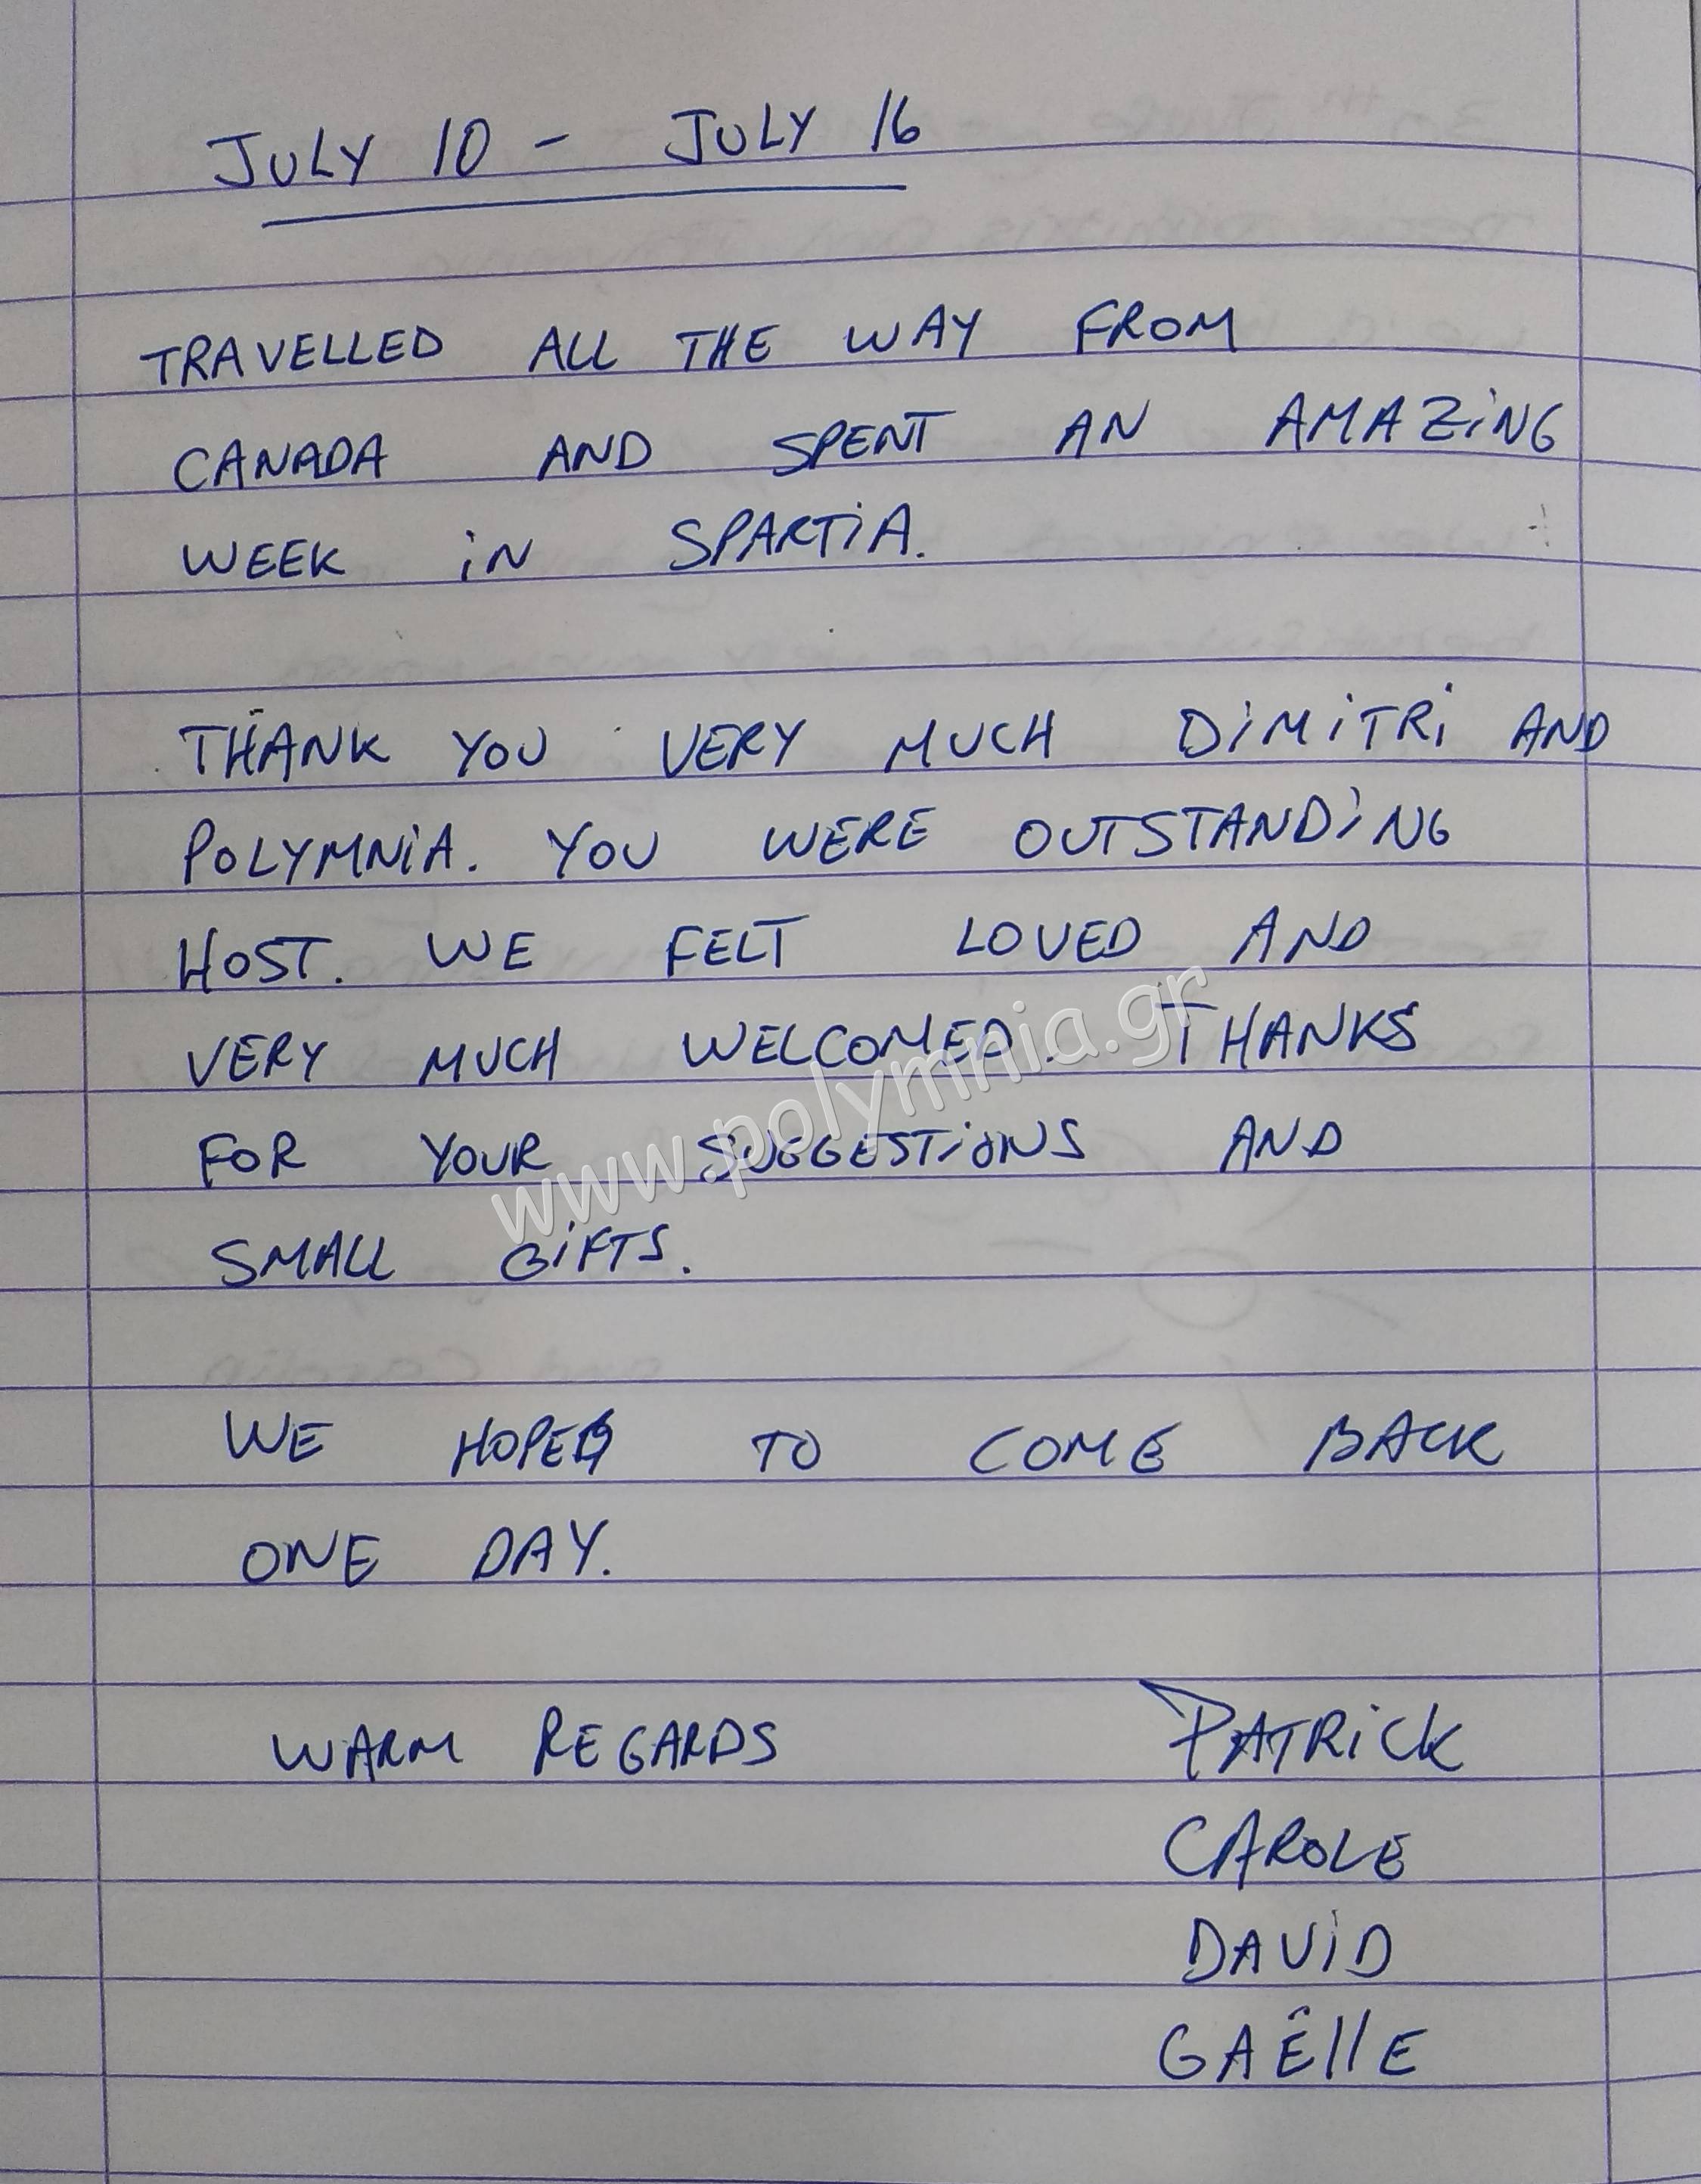 JULY 10 - JULY 16
TRAVELLED ALL THE WAY FROM
CANADA AND SPENT AN AMAZING
WEEK IN SPARTIA.
THANK YOU VERY MUCH DIMITRI AND
POLYMNIA. YOU WERE OUTSTANDING
HOST. WE FELT LOVED AND
VERY MUCH WELCOMED. THANKS
FOR YOUR SUGGESTIONS AND
SMALL GIFTS.
www.polymnia.gr
WE HOPE TO COME BACK
ONE DAY.
WARM REGARDS PATRICK
CAROLE
DAVID
GAËLLE